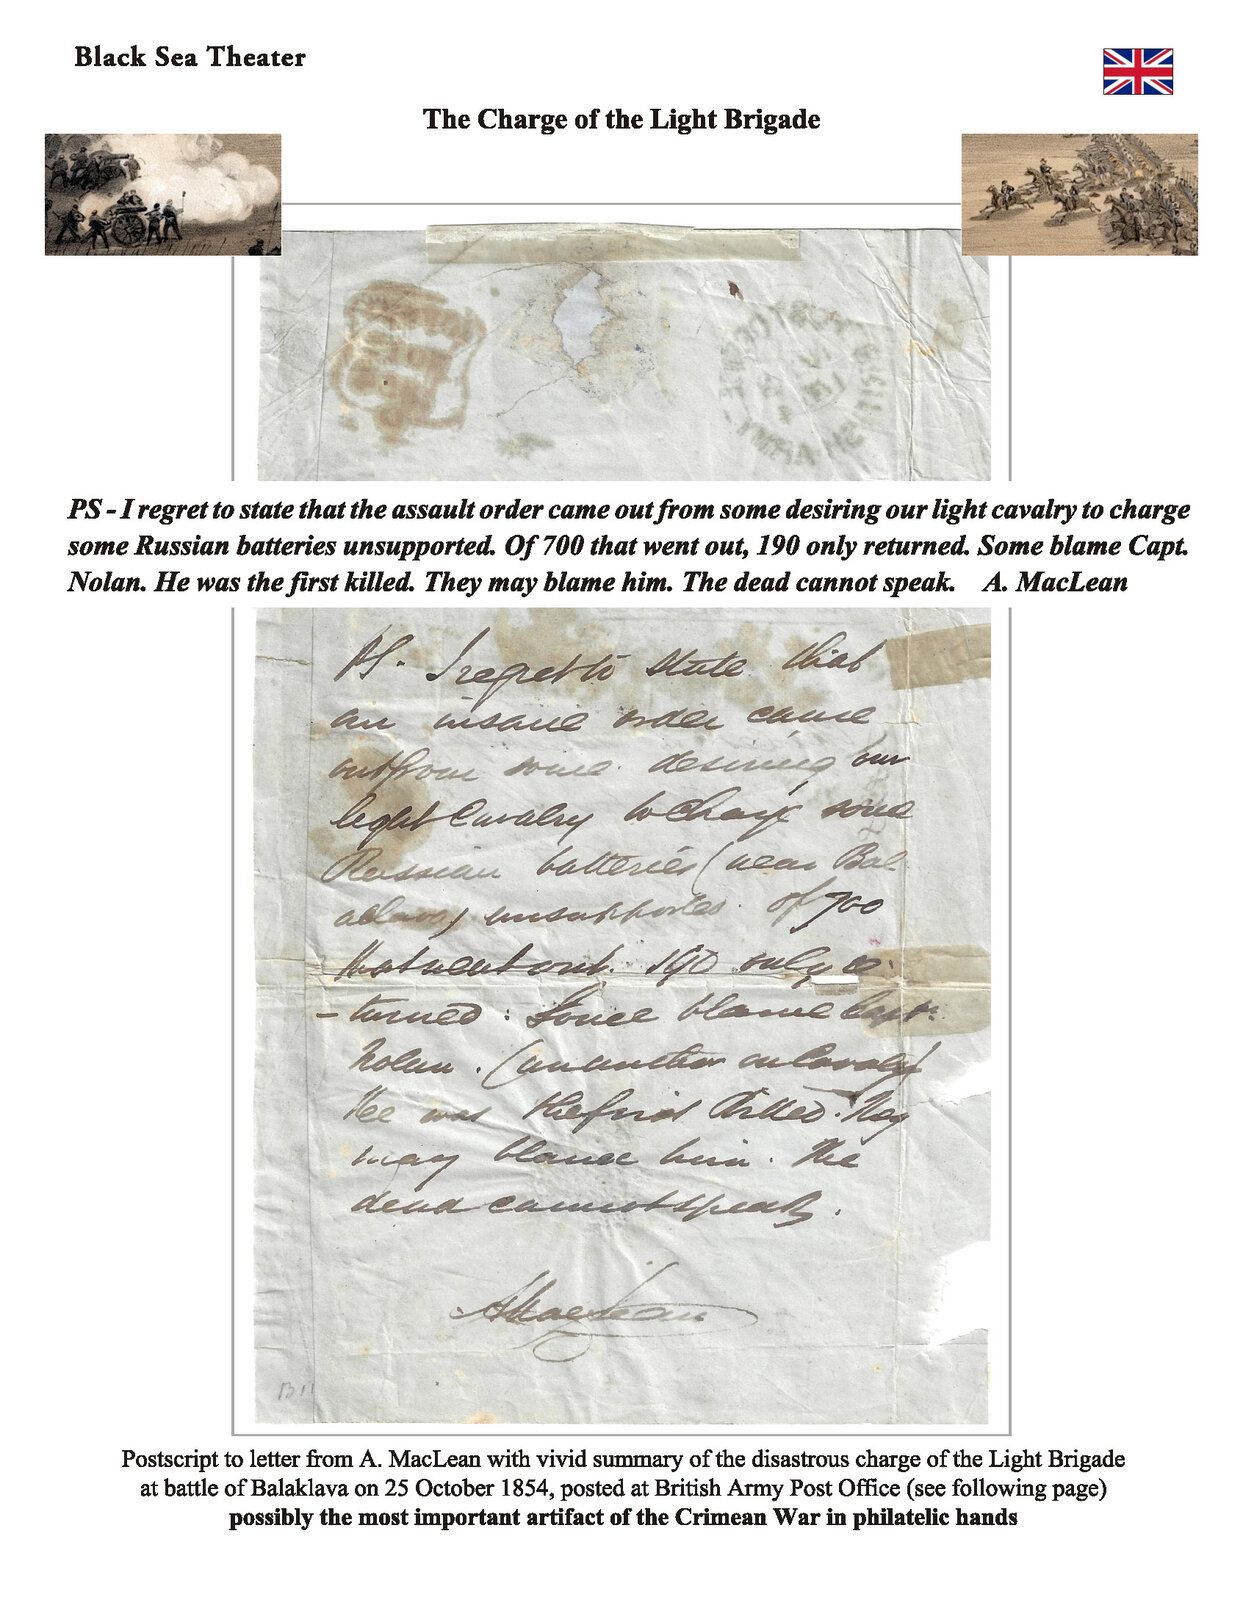 Black Sea Theater
The Charge of the Light Brigade
BRITISH ARMY
PS - I regret to state that the assault order came out from some desiring our light cavalry to charge
some Russian batteries unsupported. Of 700 that went out, 190 only returned. Some blame Capt.
Nolan. He was the first killed. They may blame him. The dead cannot speak. A. MacLean
PS. I regret to state that
an insane order came
out from some desiring our
light Cavalry to charge some
Russian batteries (near Bal
aclava) unsupported. of 700
that went out. 190 only re
- turned. Some blame Capt.
Nolan. (an author on Cavalry)
He was the first killed. They
may blame him. The
dead cannot speak.
AMacLean
B11
Postscript to letter from A. MacLean with vivid summary of the disastrous charge of the Light Brigade
at battle of Balaklava on 25 October 1854, posted at British Army Post Office (see following page)
possibly the most important artifact of the Crimean War in philatelic hands